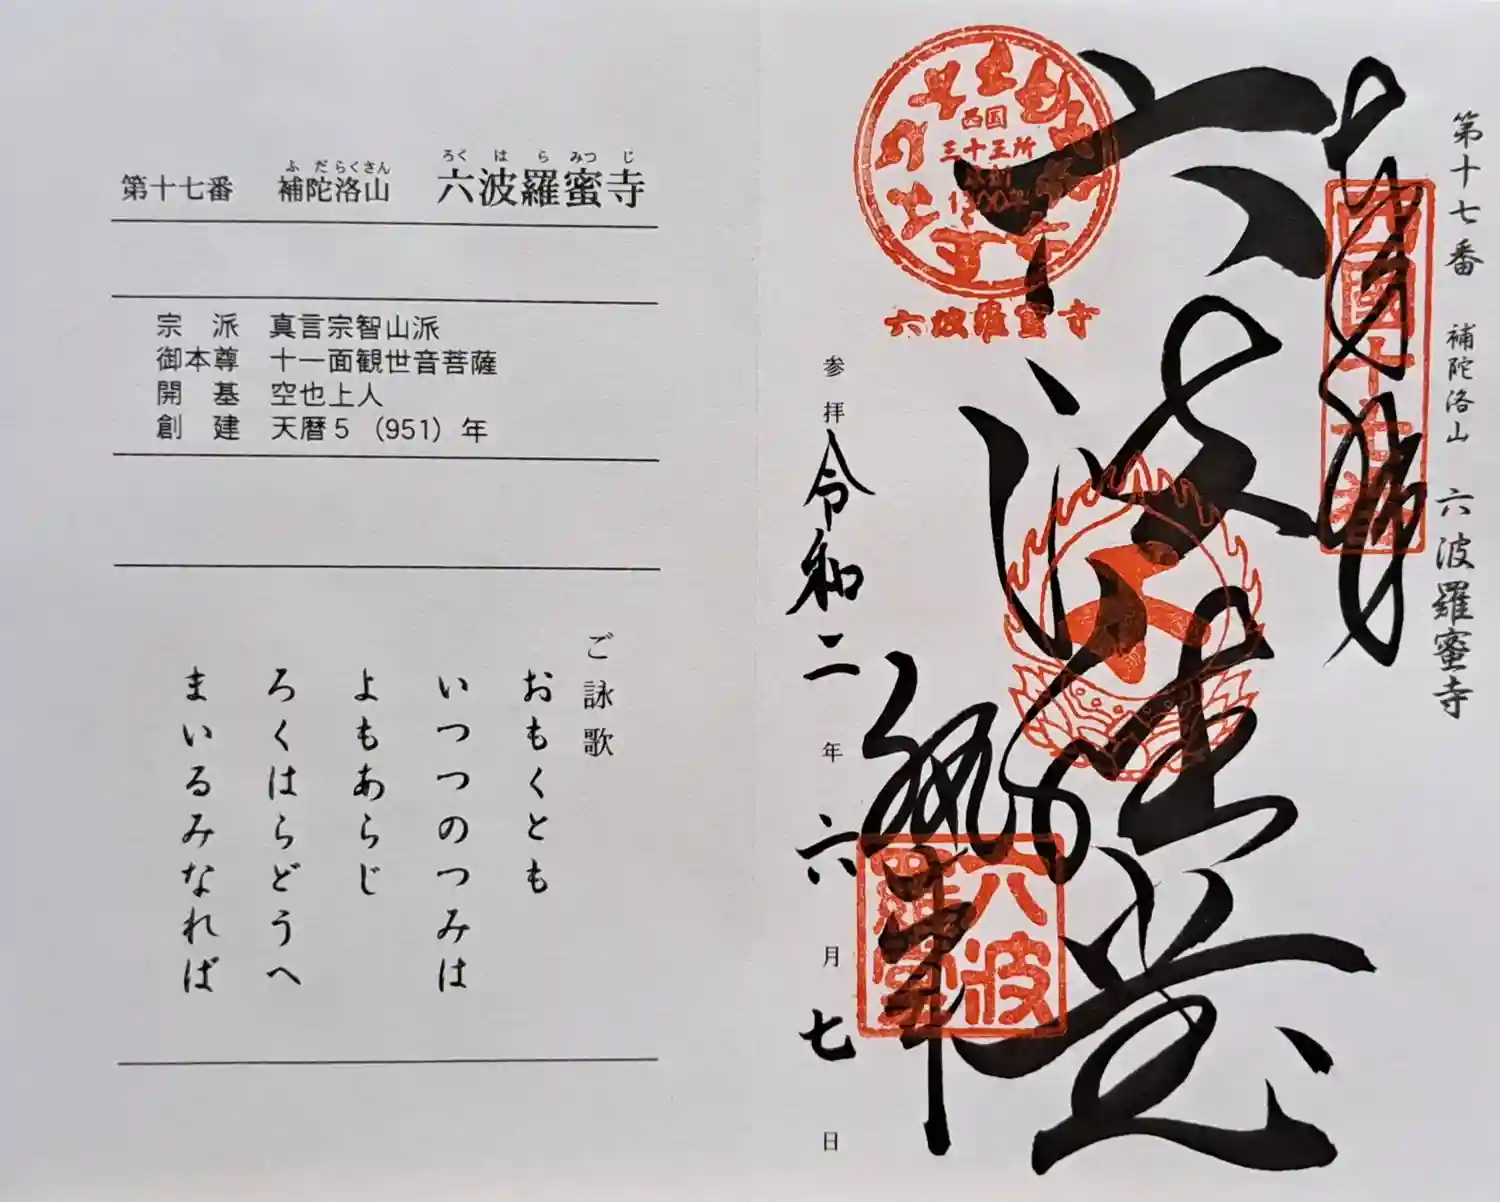 第十七番 補陀洛山 六波羅蜜寺
ふだらくさん ろくはらみつじ
宗派 真言宗智山派
御本尊 十一面観世音菩薩
開基 空也上人
創建 天暦5(951)年
ご詠歌
おもくとも
いつつのつみは
よもあらじ
ろくはらどうへ
まいるみなれば
第十七番 補陀洛山 六波羅蜜寺
西國十七番
六波
羅蜜
西国
三十三所
1300年
六波羅蜜寺
参拝 令和二年六月七日